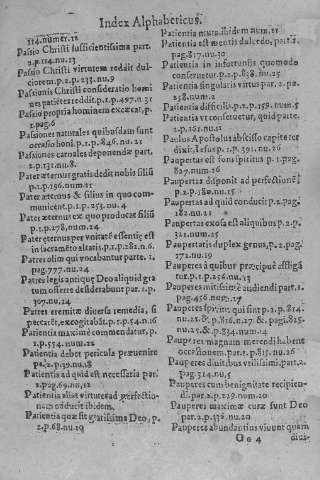 Index Alphabeticus.
114.numer.12
Passio Christi sufficientissima part.
2.p.114.nu.13
Passio Christi virtutem reddit dulciorem.p.2.p.233.nu.9
Passionis Christi consideratio homines patiētes reddit.p.1.p.497.n.31
Passio propria hominem excæcat, p.
2.pag.6
Passiones naturales quibusdam sunt
occasio boni.p.1.p.846.nu.21
Passiones carnales deponendæ part.
2.p.131.nu.8
Pater æternus gratis dedit nobis filiū
p.1.p.196.num.21
Pater æternus & filius in quo communicent.p.1.p.253.nu.4
Pater æternus ex quo producat filiū
p.1.p.278.num.24
Pater æternus per vnitatē essentię est
in sacramēto altaris.p.1.p.281.n.6.
Patres olim qui vocabantur parte.1.
pag.777.nu.24
Patres legis antiquæ Deo aliquid gratum offerre desiderabant par.1.p.
307.nu.24
Patres eremitæ diuersa remedia, si
peccarēt, excogitabāt.p.1.p.54.n.16
Patientia maximè commendatur, p.
2.p.574.num.22
Patientia debet pericula præuenire
pa.2.p.39.nu.18
Patientia ad quid est necessaria par.
2.pag.69.nu.12
Patientia alias virtutes ad perfectionem ducit ibidem.
Patientia quæ sit gratissima Deo, p.
2.p.68.nu.19
Patientia nutra ibidem num.21
Patientia est mentis dulcedo, part.1.
pag.817.nu.30
Patientia in infortunijs quomodo
conseruetur.p.1.p.818.nu.25
Patientia singularis virtus par.2.pa.
258.num.2
Patientia difficilis.p.2.p.159.num.5
Patientia vt conseruetur, quid parte.
2.p.161.nu.11
Paulus Apostolus abscisso capite ter
dixit Iesus p.1.p.391.nu.26
Paupertas est conspicitus p.1.pag.
827.num.26
Paupertas disponit ad perfectionē
p.2.p.180.nu.15
Paupertas ad quid conducit p.2.pag.
182.nu.21
Paupertas exosa est aliquibus p.2.p.
321.num.25
Paupertatis duplex genus, p.2.pag.
271.nu.19
Pauperes à quibus præcipuè affligātur.p.1.p.136.nu.23
Pauperes mitissimè audiendi part.1.
pag.456.nu.17
Pauperes spiritu, qui sint p.2.p.814.
nu.21.& p.816.n.27.& pagi.825.
nu.25.& p.834.num.14
Pauperes magnam merendi habent
occasionem.part.1.p.815.nu.26
Pauperes diuitibus vtilissimi, part.2.
pag.314.nu.5
Pauperes cum benignitate recipiendi.par.2.p.239.num.20
Pauperes maximæ curæ sunt Deo
par.2.p.338.nu.20
Pauperes abundantius viuunt quam
Ooo 4
diui-